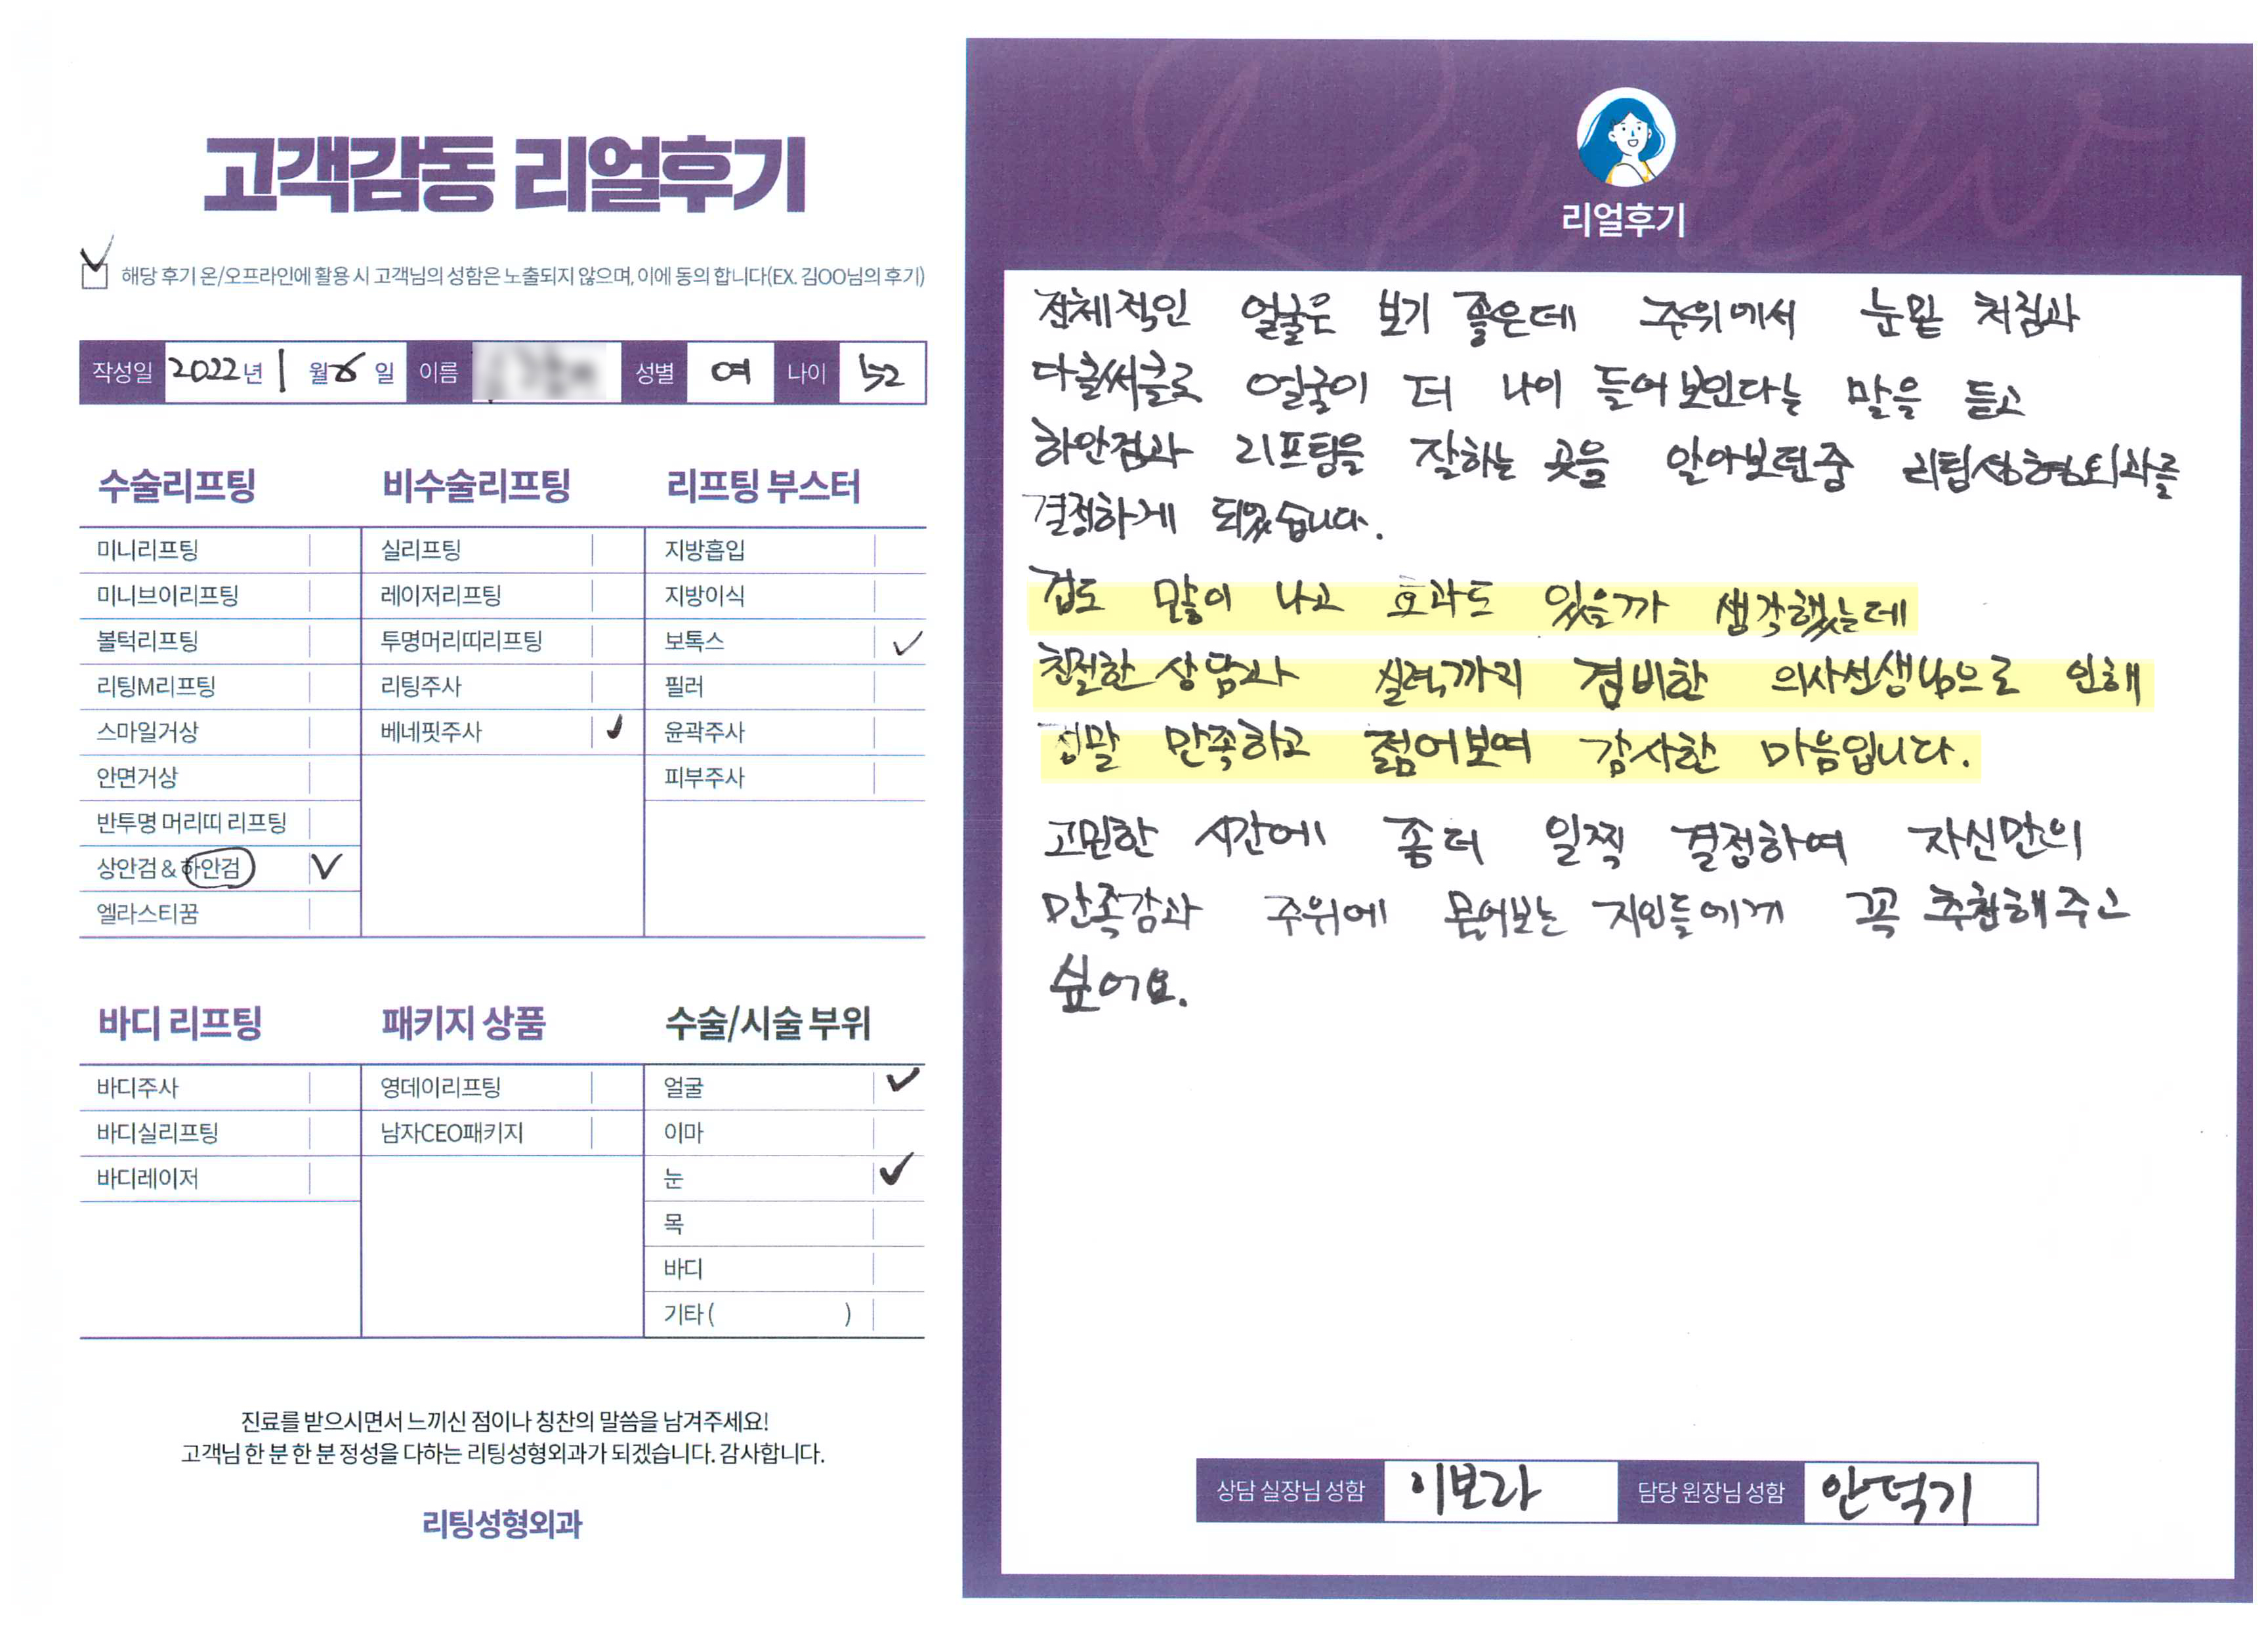 고객감동 리얼후기
해당 후기 온/오프라인에 활용 시 고객님의 성함은 노출되지 않으며, 이에 동의 합니다(EX. 김OO님의 후기)
작성일 2022년 1 월 6 일 이름 성별 여 나이 52
수술리프팅
미니리프팅
미니브이리프팅
볼턱리프팅
리팅M리프팅
스마일거상
안면거상
반투명 머리띠 리프팅
상안검 & 하안검
엘라스티꿈
비수술리프팅
실리프팅
레이저리프팅
투명머리띠리프팅
리팅주사
베네핏주사
리프팅 부스터
지방흡입
지방이식
보톡스
필러
윤곽주사
피부주사
바디 리프팅
바디주사
바디실리프팅
바디레이저
패키지 상품
영데이리프팅
남자CEO패키지
수술/시술 부위
얼굴
이마
눈
목
바디
기타 ( )
진료를 받으시면서 느끼신 점이나 칭찬의 말씀을 남겨주세요!
고객님 한 분 한 분 정성을 다하는 리팅성형외과가 되겠습니다. 감사합니다.
리팅성형외과
Review
리얼후기
전체적인 얼굴은 보기 좋은데 주위에서 눈밑 처짐과
다클써클로 얼굴이 더 나이 들어보인다는 말을 듣고
하안검과 리프팅을 잘하는 곳을 알아보던중 리팅성형외과를
결정하게 되었습니다.
겁도 많이 나고 효과도 있을까 생각했는데
친절한 상담과 실력까지 겸비한 의사선생님으로 인해
정말 만족하고 젊어보여 감사한 마음입니다.
고민한 시간에 좀더 일찍 결정하여 자신만의
만족감과 주위에 물어보는 지인들에게 꼭 추천해주고
싶어요.
상담 실장님 성함 이보라 담당 원장님 성함 안덕기